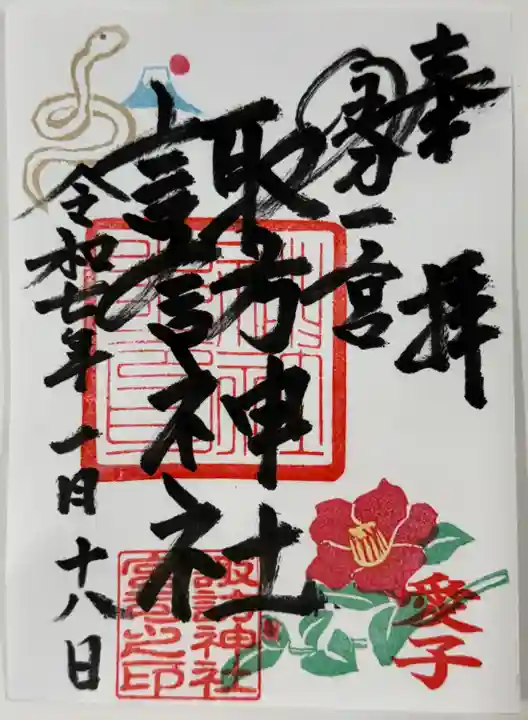 奉拝
国分一宮
諏訪神社
令和七年一月十八日
諏訪神社
宮司之印
愛子